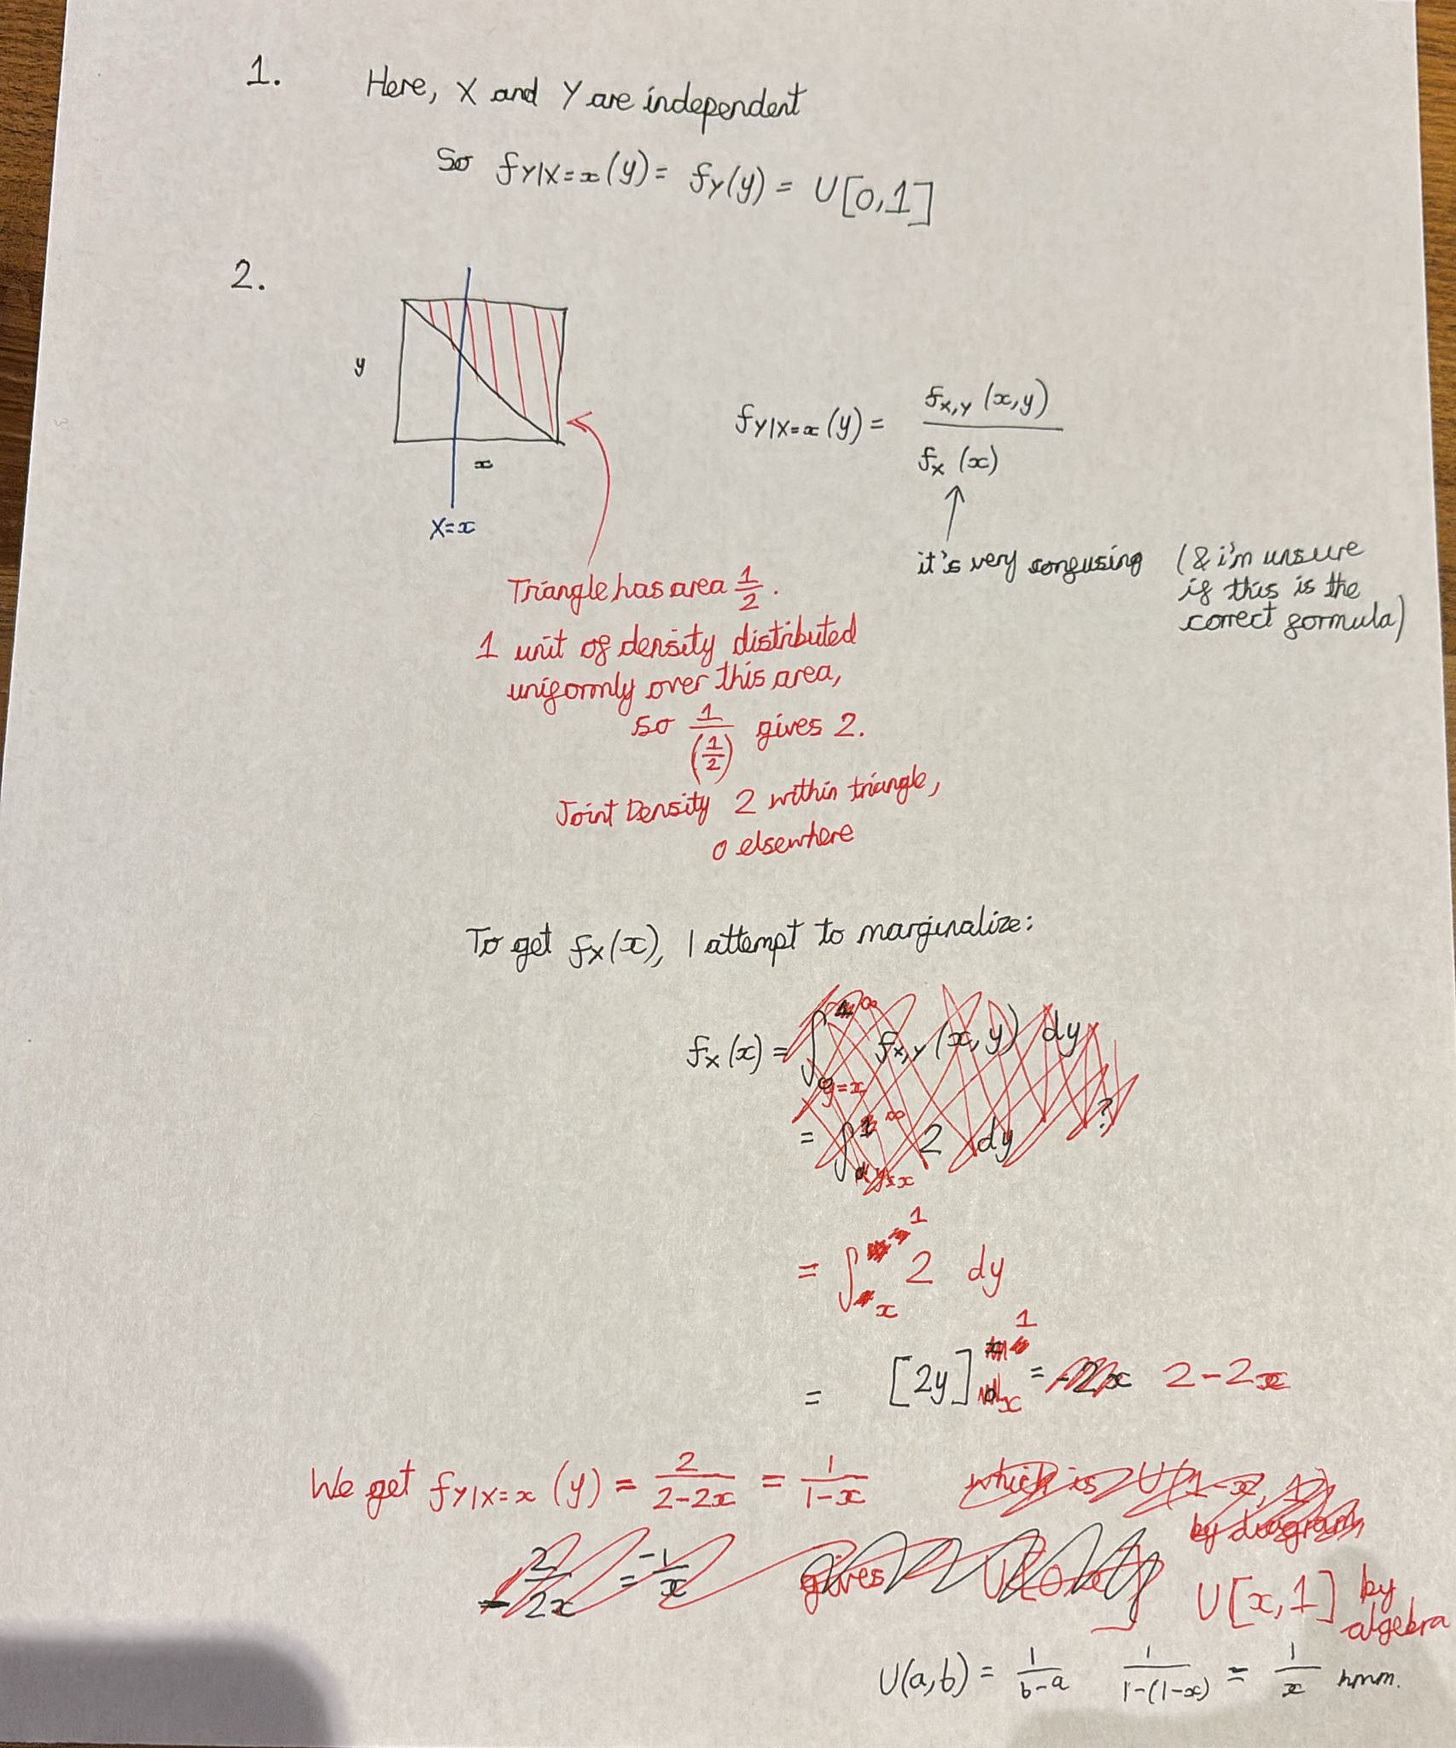 1. Here, X and Y are independent
So f_{Y|X=x}(y) = f_Y(y) = U[0,1]
2.
y
x
X=x
f_{Y|X=x}(y) = f_{X,Y}(x,y) / f_X(x)
↑
it's very confusing (& i'm unsure
if this is the
correct formula)
Triangle has area 1/2.
1 unit of density distributed
uniformly over this area,
so 1/(1/2) gives 2.
Joint Density 2 within triangle,
0 elsewhere
To get f_X(x), I attempt to marginalize:
f_X(x) = ∫_{y=x}^{∞} f_{X,Y}(x,y) dy
= ∫_{y=x}^{∞} 2 dy ?
= ∫_x^1 2 dy
= [2y]_x^1 = -2x 2-2x
We get f_{Y|X=x}(y) = 2/(2-2x) = 1/(1-x) which is U(1-x, 1),
by diagram,
-2/2x = -1/x gives U[x,1] by
algebra
U(a,b) = 1/(b-a) 1/(1-(1-x)) = 1/x hmm.